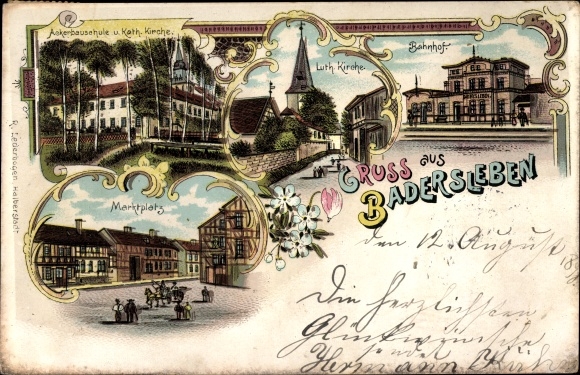 Ackerbauschule u. Kath. Kirche.
Luth. Kirche.
Bahnhof.
Marktplatz.
GRUSS aus
BADERSLEBEN
R. Lederbogen, Halberstadt.
den 12. August 18
Die herzlichsten
Glückwünsche
sendet
Hermann